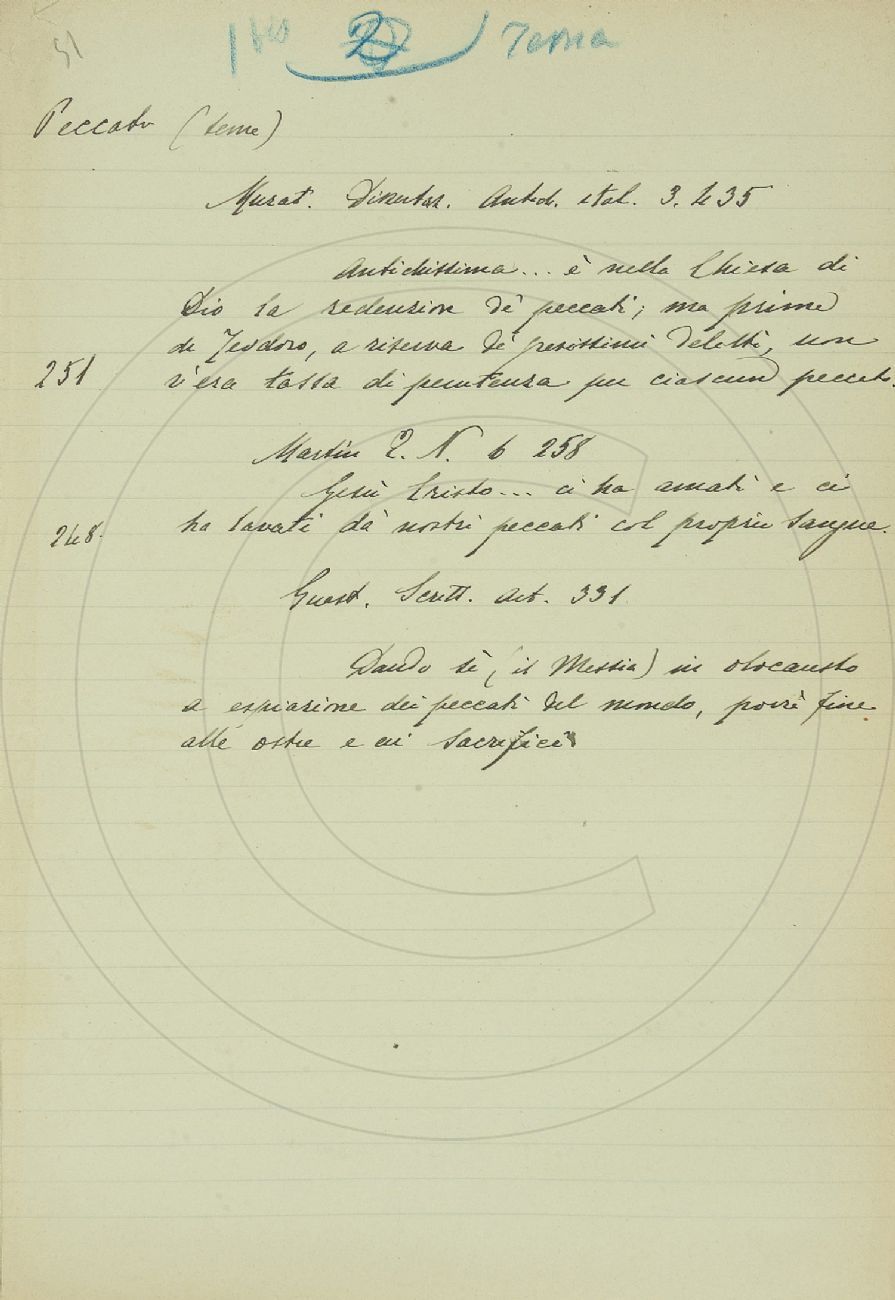 51
2 Tema
Peccato (teme)
Murat. Dissertaz. Antich. ital. 3. 435
Antichissima... è nella Chiesa di
Dio la redenzion de' peccati; ma prima
di Teodoro, a riserva de' pessimi delitti, non
251 v'era tassa di penitenza per ciascun peccato.
Martin T. N. 6 258
Gesù Cristo... ci ha amati e ci
248. ha lavati da' nostri peccati col proprio sangue.
Guast. Scritt. Art. 331
Dando sè (il Messia) in olocausto
a espiazione dei peccati del mondo, porrà fine
alle ostie e ai sacrifici